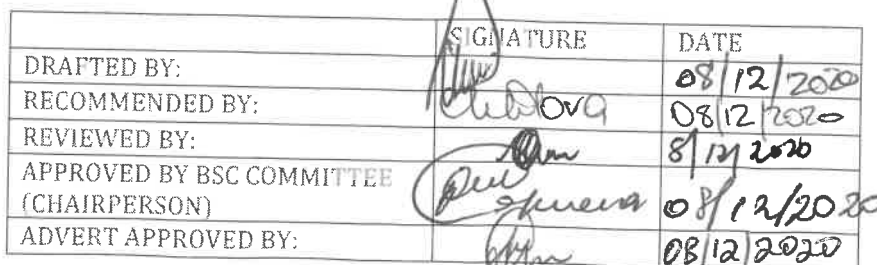 SIGNATURE DATE
DRAFTED BY: 08/12/2020
RECOMMENDED BY: 08/12/2020
REVIEWED BY: 8/12/2020
APPROVED BY BSC COMMITTEE
(CHAIRPERSON) 08/12/2020
ADVERT APPROVED BY: 08/12/2020